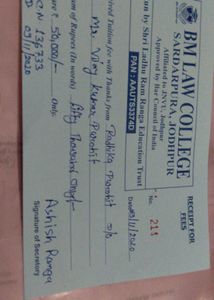 RECEIPT FOR
FEES
BM LAW COLLEGE
SARDARPURA, JODHPUR
Affiliated to JNVU, Jodhpur
Approved by Bar Council of India
Run by Shri Ladhu Ram Ranga Education Trust
PAN : AAUTS3374D
No. 211
Date 03/11/2020
Received Tuition fee with Thanks from "Radhika Purohit D/o
Mr. Vijay Kumar Purohit
Sum of Rupees (In words) fifty Thousand Only/-
Only.
50,000/-
136733
03/11/2020
Ashish Ranga
Signature of Secretary